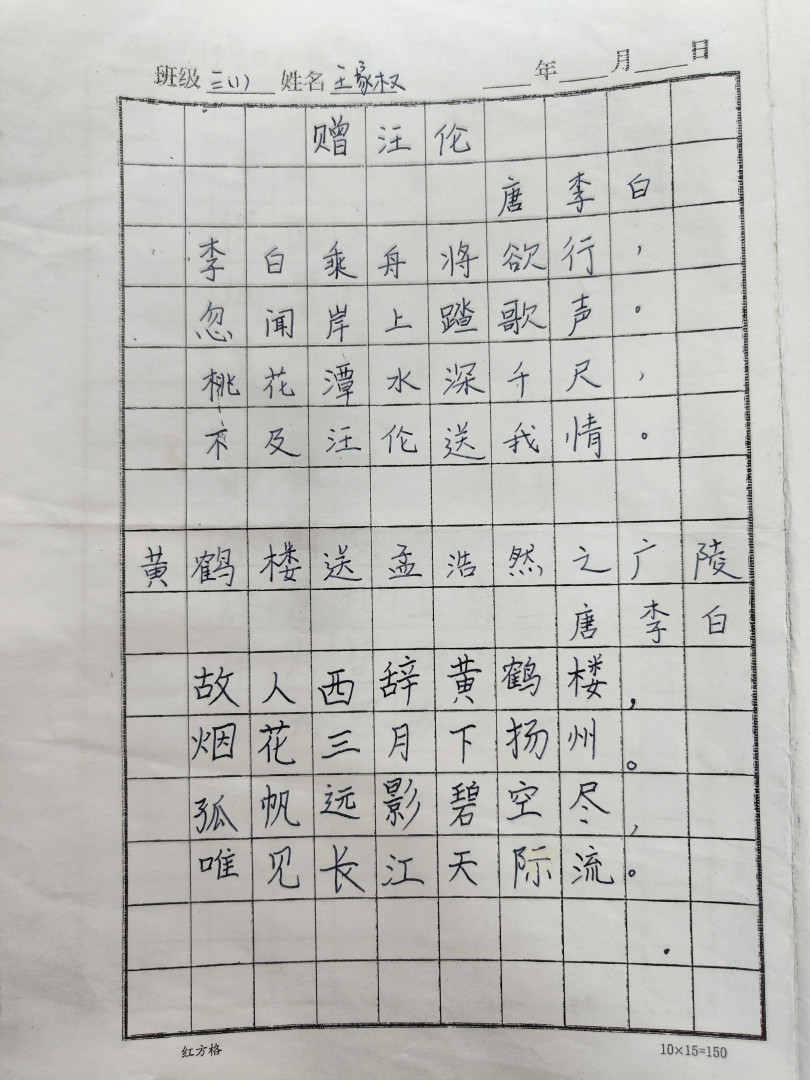 班级 三(1) 姓名 王家权 年 月 日
赠汪伦
唐李白
李白乘舟将欲行，
忽闻岸上踏歌声。
桃花潭水深千尺，
不及汪伦送我情。
黄鹤楼送孟浩然之广陵
唐李白
故人西辞黄鹤楼，
烟花三月下扬州。
孤帆远影碧空尽，
唯见长江天际流。
红方格 10×15=150